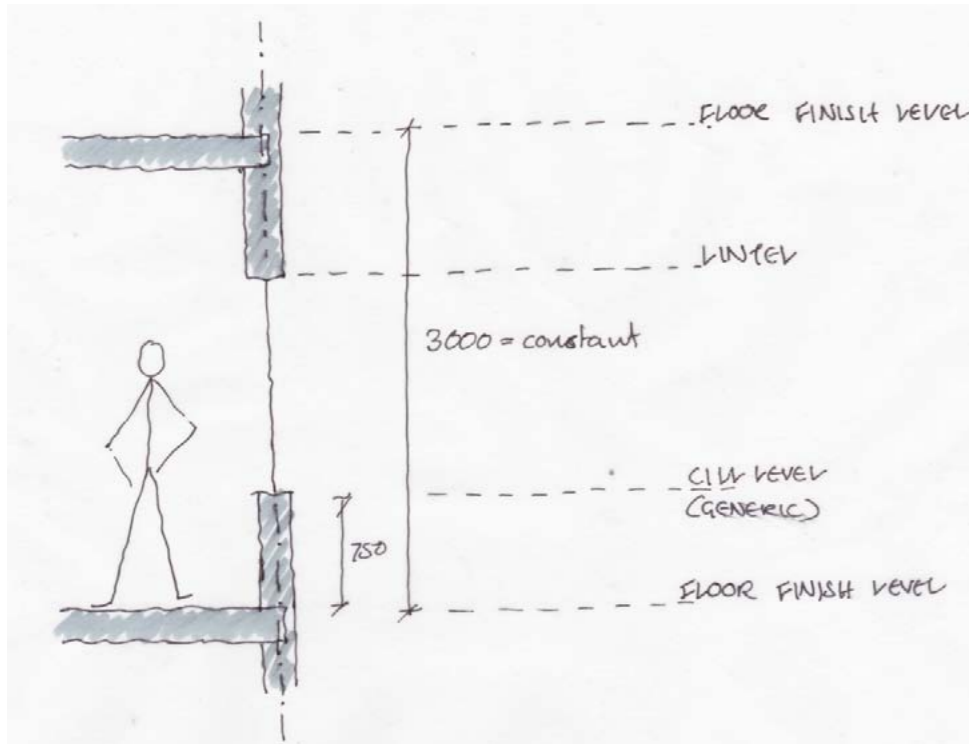 FLOOR FINISH LEVEL
LINTEL
3000 = constant
CILL LEVEL
(GENERIC)
750
FLOOR FINISH LEVEL